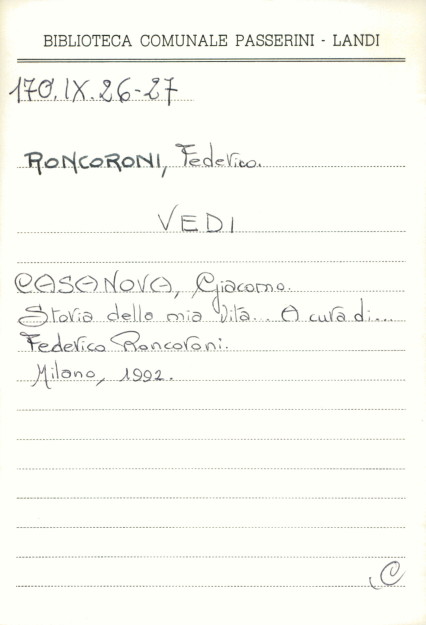 BIBLIOTECA COMUNALE PASSERINI - LANDI
170.IX.26-27
RONCORONI, Federico.
VEDI
CASANOVA, Giacomo.
Storia della mia Vita... A cura di...
Federico Roncoroni.
Milano, 1992.
C